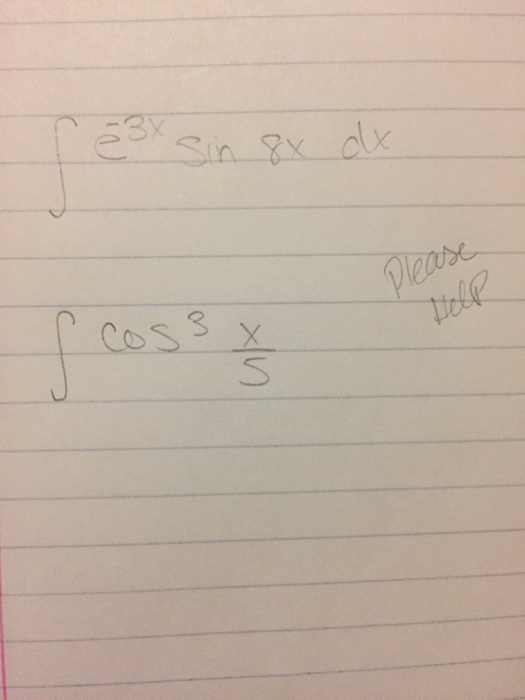 ∫ e⁻³ˣ sin 8x dx
Please
Help
∫ cos³ x/5